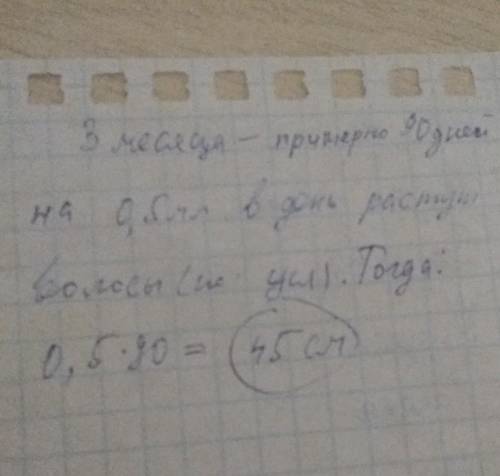 3 месяца - примерно 90 дней
на 0,5мм в день растут
волосы (по усл). Тогда:
0,5·90 = 45 см